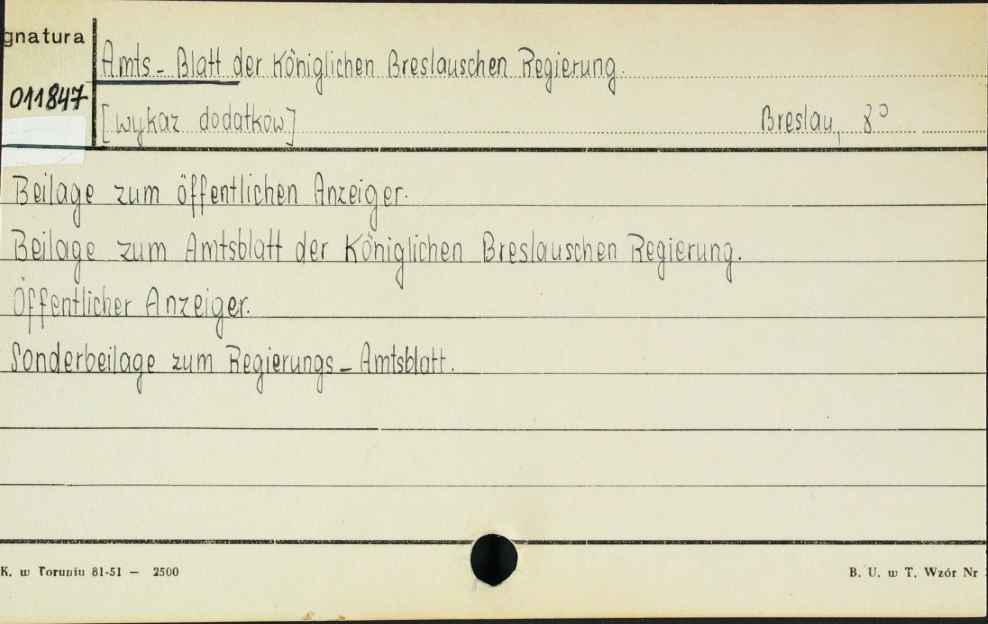 gnatura
Amts-Blatt der Königlichen Breslauschen Regierung.
011847
[wykaz dodatków] Breslau, 8°
Beilage zum öffentlichen Anzeiger.
Beilage zum Amtsblatt der Königlichen Breslauschen Regierung.
Öffentlicher Anzeiger.
Sonderbeilage zum Regierungs-Amtsblatt.
K. w Toruniu 81-51 — 2500
B. U. w T. Wzór Nr